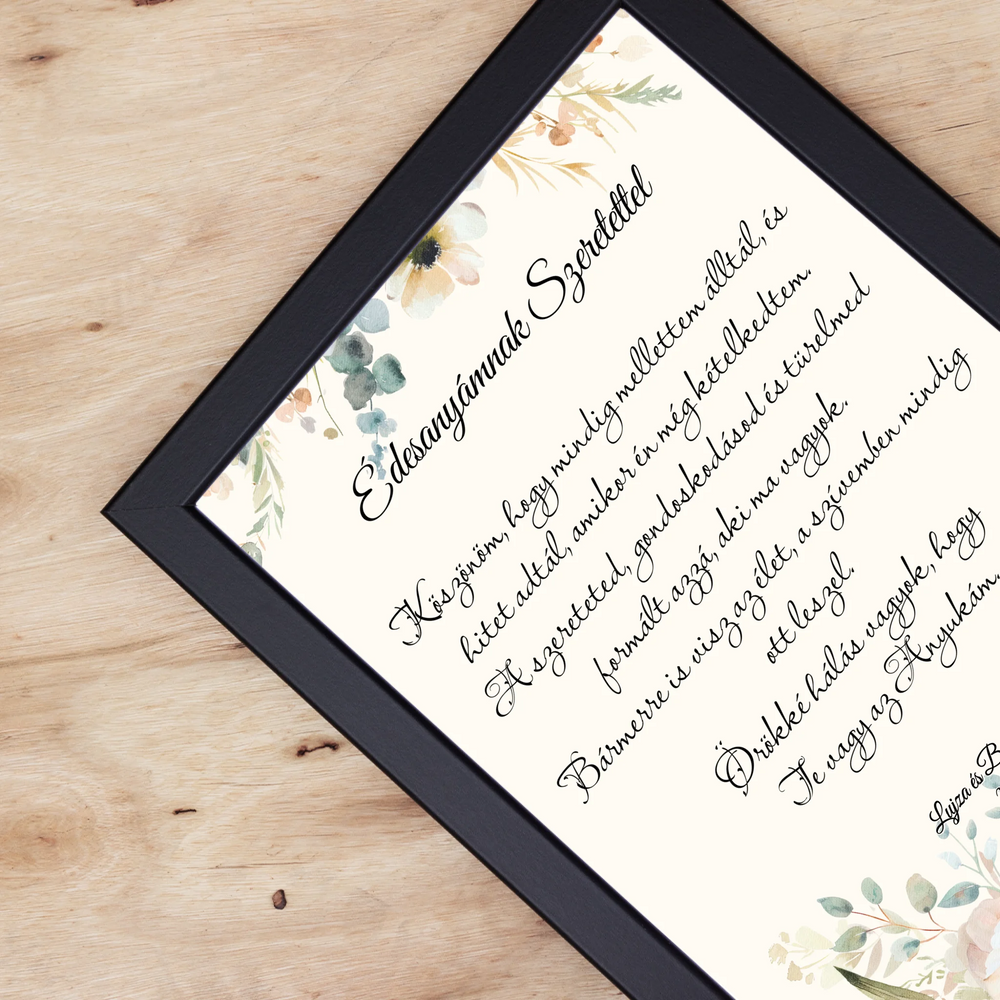 Édesanyámnak Szeretettel
Köszönöm, hogy mindig mellettem álltál, és
hitet adtál, amikor én még kételkedtem.
A szereteted, gondoskodásod és türelmed
formált azzá, aki ma vagyok.
Bármerre is visz az élet, a szívemben mindig
ott leszel.
Örökké hálás vagyok, hogy
Te vagy az Anyukám.
Lujza és B